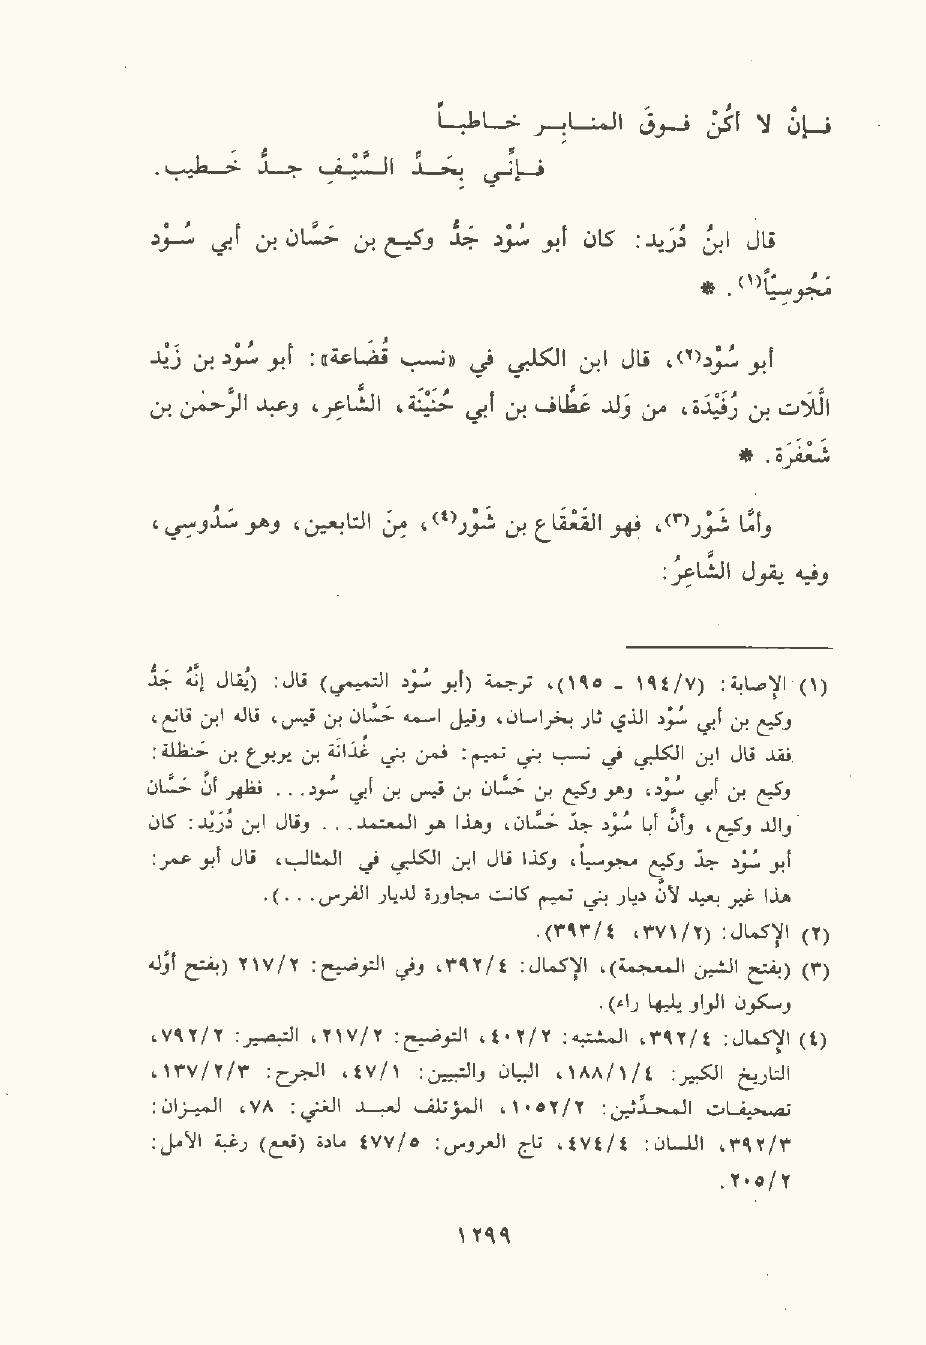 فإنْ لا أَكُنْ فوقَ المنابر خاطباً
فإنِّي بِحَدِّ السَّيْفِ جدُّ خَطيب.
قال ابنُ دُرَيد: كان أبو سُوْد جَدُّ وكيع بن حَسَّان بن أبي سُوْد
مَجُوسِيّاً(١). *
أبو سُوْد(٢)، قال ابن الكلبي في «نسب قُضَاعة»: أبو سُوْد بن زَيْد
الَّلات بن رُفَيْدَة، من وَلَد عَطَّاف بن أبي حُنَيْنَة، الشَّاعِر، وعبد الرَّحمٰن بن
شَعْفَرَة. *
وأمَّا شَوْر(٣)، فهو القَعْقَاع بن شَوْر(٤)، مِنَ التابعين، وهو سَدُوسِي،
وفيه يقول الشَّاعِرُ:
(١) الإصابة: (٧/١٩٤ - ١٩٥)، ترجمة (أبو سُوْد التميمي) قال: (يُقال إنَّهُ جَدُّ
وكيع بن أبي سُوْد الذي ثار بخراسان، وقيل اسمه حَسَّان بن قيس، قاله ابن قانع،
فقد قال ابن الكلبي في نسب بني تميم: فمن بني غُدَانَة بن يربوع بن حَنظلة:
وكيع بن أبي سُوْد، وهو وكيع بن حَسَّان بن قيس بن أبي سُود... فظهر أنَّ حَسَّان
والد وكيع، وأنَّ أبا سُوْد جَدّ حَسَّان، وهذا هو المعتمد... وقال ابن دُرَيْد: كان
أبو سُوْد جد وكيع مجوسياً، وكذا قال ابن الكلبي في المثالب، قال أبو عمر:
هذا غير بعيد لأنَّ ديار بني تميم كانت مجاورة لديار الفرس...).
(٢) الإكمال: (٢/٣٧١، ٤/٣٩٣).
(٣) (بفتح الشين المعجمة)، الإكمال: ٤/٣٩٢، وفي التوضيح: ٢/٢١٧ (بفتح أوَّله
وسكون الواو يليها راء).
(٤) الإكمال: ٤/٣٩٢، المشتبه: ٢/٤٠٢، التوضيح: ٢/٢١٧، التبصير: ٢/٧٩٢،
التاريخ الكبير: ٤/١/١٨٨، البيان والتبيين: ١/٤٧، الجرح: ٣/٢/١٣٧،
تصحيفات المحدِّثين: ٢/١٠٥٢، المؤتلف لعبد الغني: ٧٨، الميزان:
٣/٣٩٢، اللسان: ٤/٤٧٤، تاج العروس: ٥/٤٧٧ مادة (قعع) رغبة الأمل:
٢/٢٠٥.
١٢٩٩